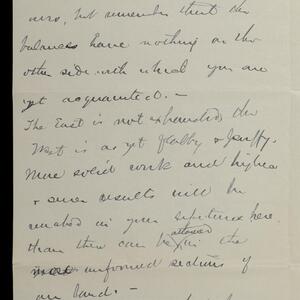 but remember that the
balances have nothing on the
other side with which you are
yet acquainted. —
The East is not exhausted the
West is as yet flabby &
More solid work and higher
& results will be
reached in your experience here
than there can be attained in the
unformed sections of
our land. —